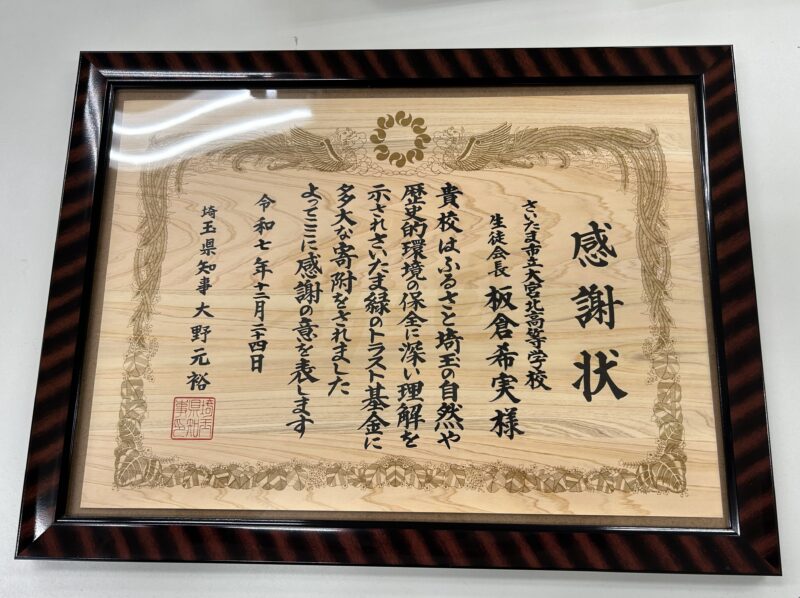 感謝状
さいたま市立大宮北高等学校
生徒会長 板倉希実様
貴校はふるさと埼玉の自然や
歴史的環境の保全に深い理解を
示されさいたま緑のトラスト基金に
多大な寄附をされました
よってここに感謝の意を表します
令和七年十二月二十四日
埼玉県知事 大野元裕
埼玉県知事之印